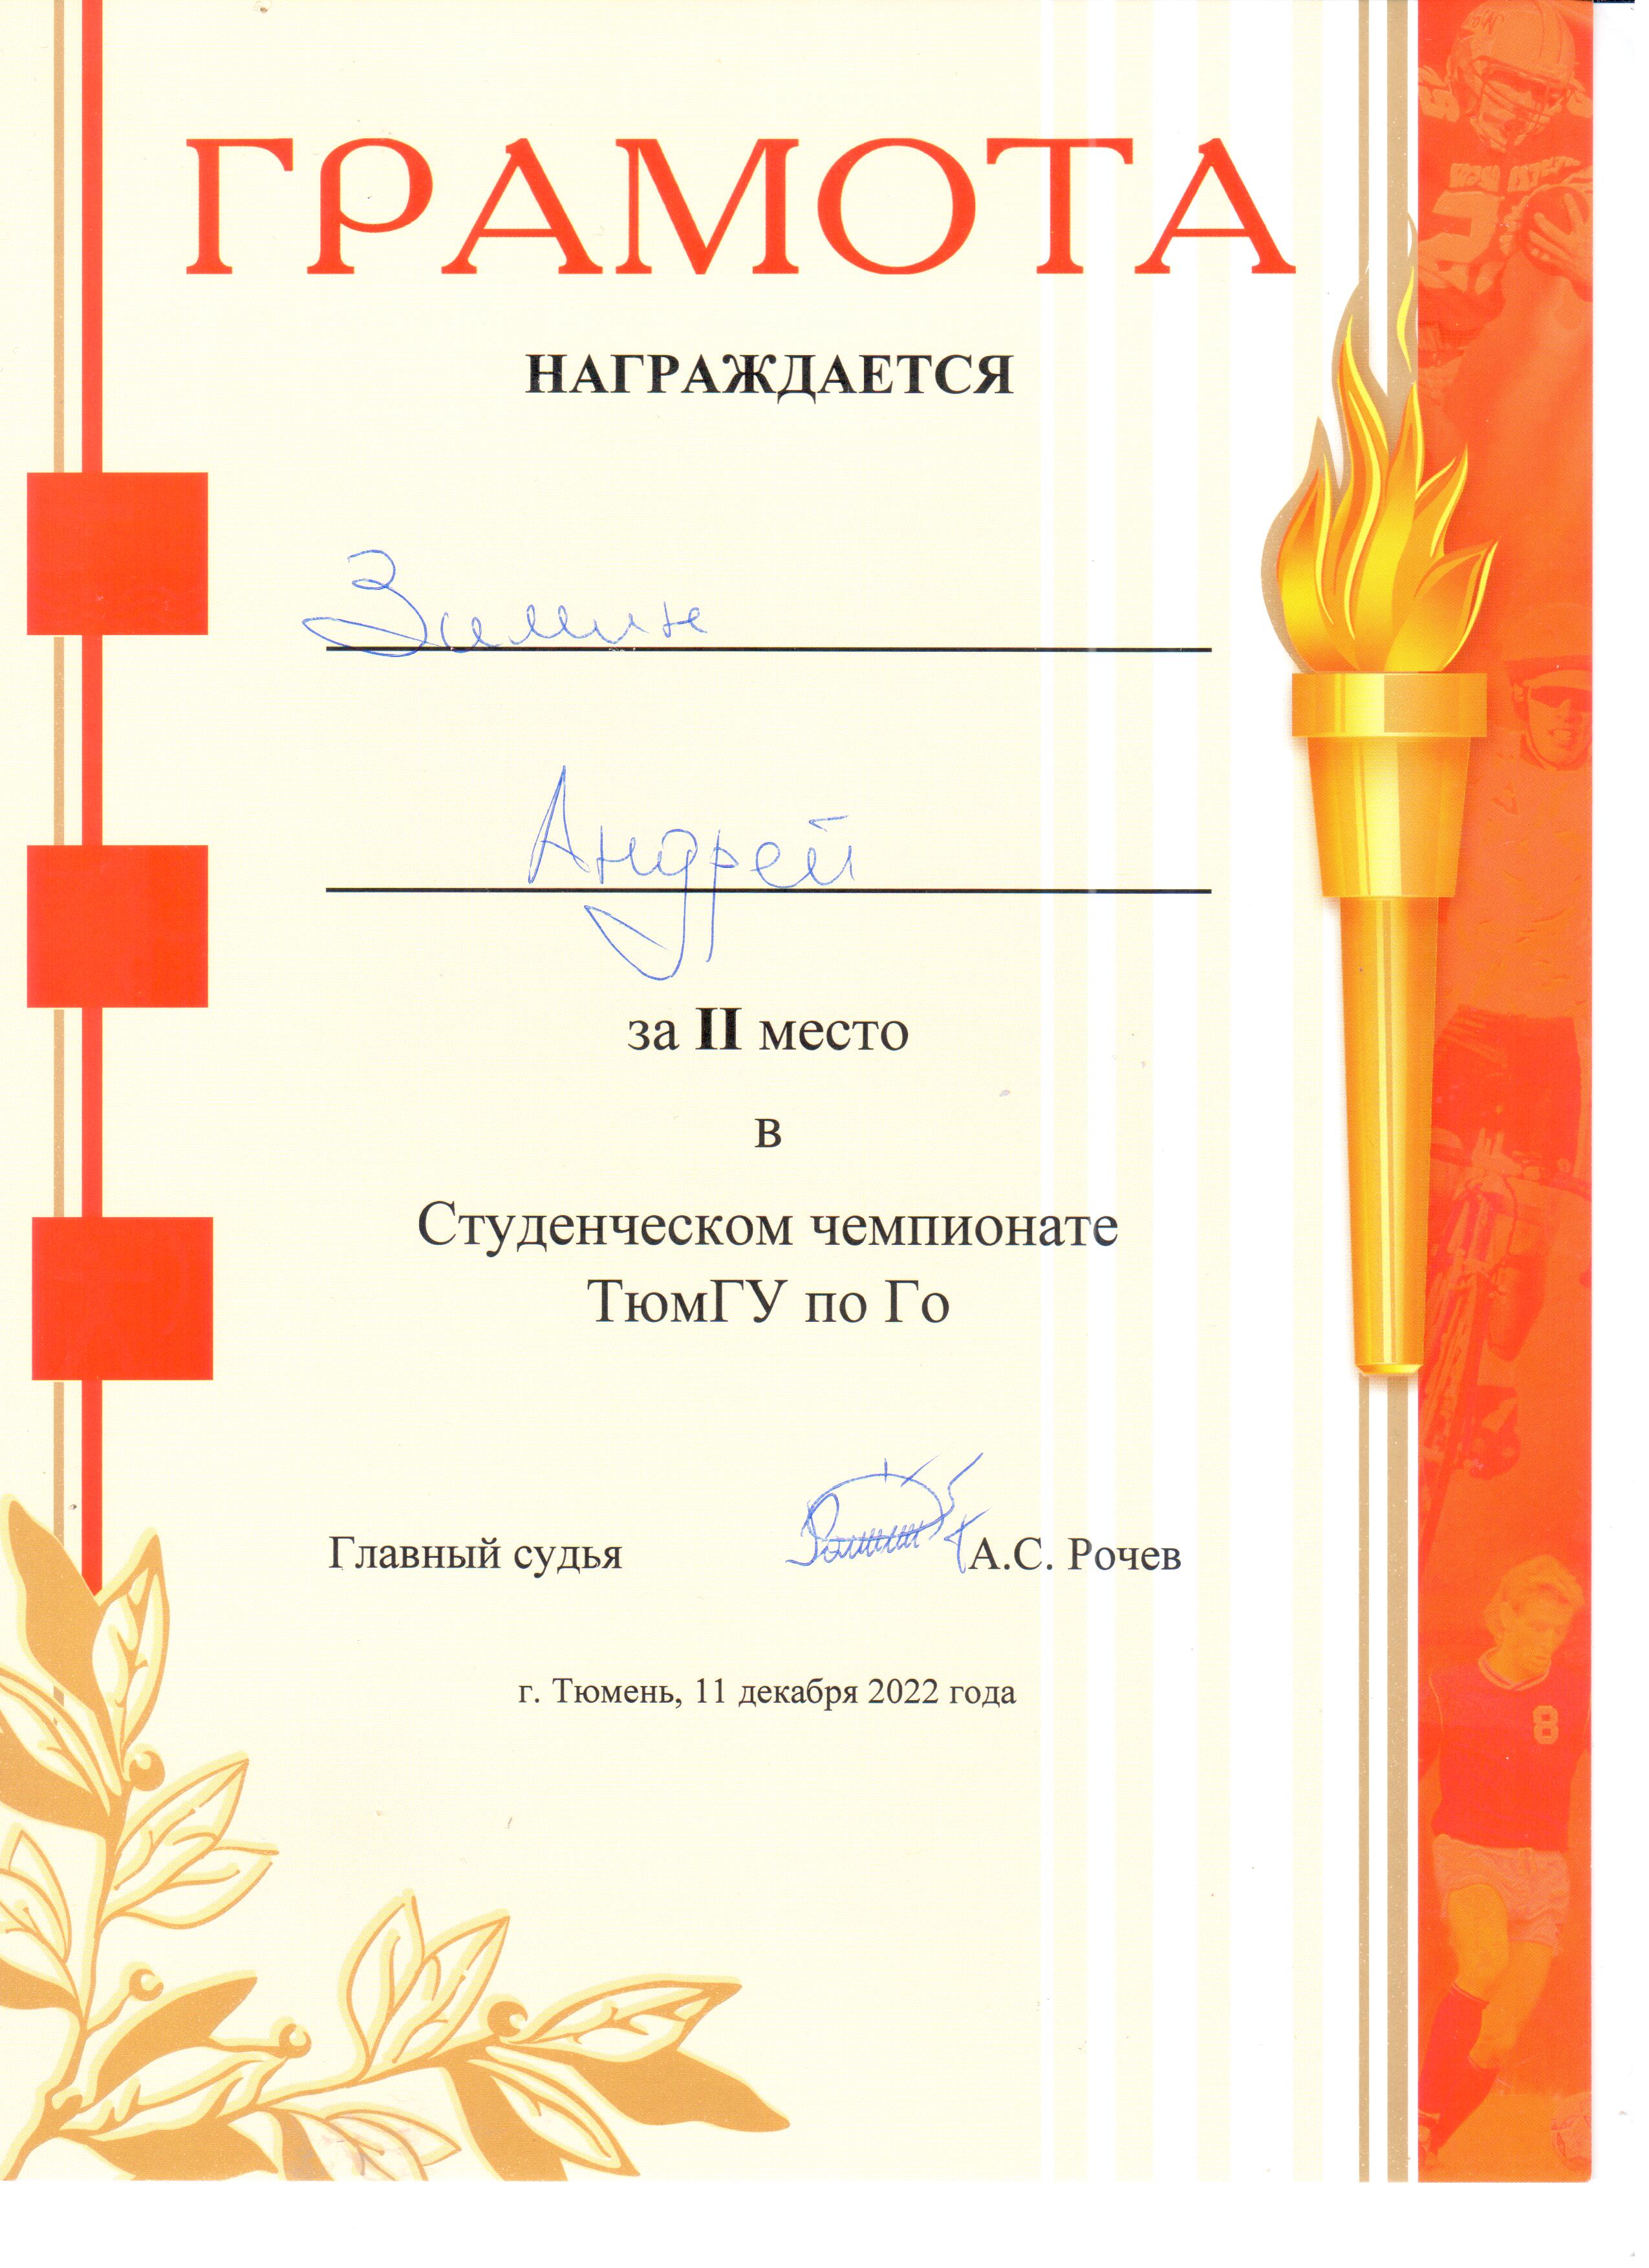 ГРАМОТА
НАГРАЖДАЕТСЯ
Зимин
Андрей
за II место
в
Студенческом чемпионате
ТюмГУ по Го
Главный судья А.С. Рочев
г. Тюмень, 11 декабря 2022 года
8